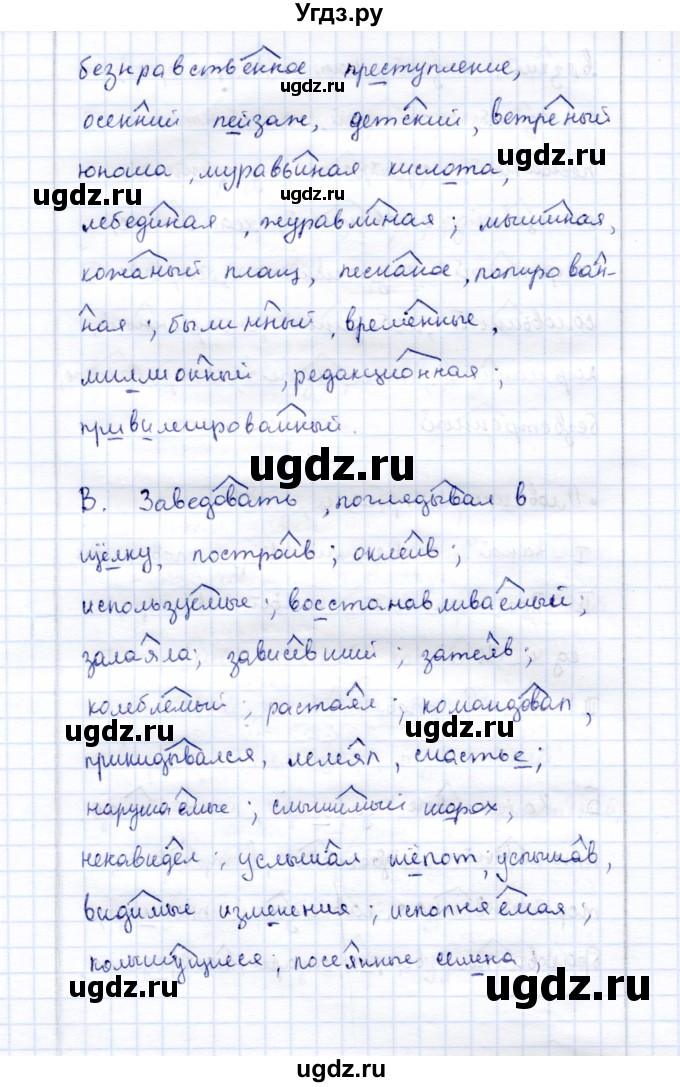 Угдз.ру
безнравственное преступление,
ugdz.ru
осенний пейзаж, детский, ветреный
ugdz.ru
юноша, муравьиная кислота,
ugdz.ru ugdz.ru
лебединая, журавлиная; мышиная,
кожаный плащ, песчаное, полирован-
ная; былинный, временные,
ugdz.ru ugdz.ru
миллионный, редакционная;
привилегированный.
ugdz.ru
В. Заведовать, поглядывал в
щёлку, построив; оклеив;
ugdz.ru
используемые; восстанавливаемый;
залаяла; зависевший; затеяв;
ugdz.ru
колеблемый; растаял; командовал,
ugdz.ru ugdz.ru
прикидывался, лелеял, счастье;
нарушаемые; слышимый шорох,
ненавидел; услышал шёпот; услышав,
ugdz.ru
видимые изменения; исполняемая;
колышущиеся; посеянные семена;
ugdz.ru ugdz.ru
ugdz.ru